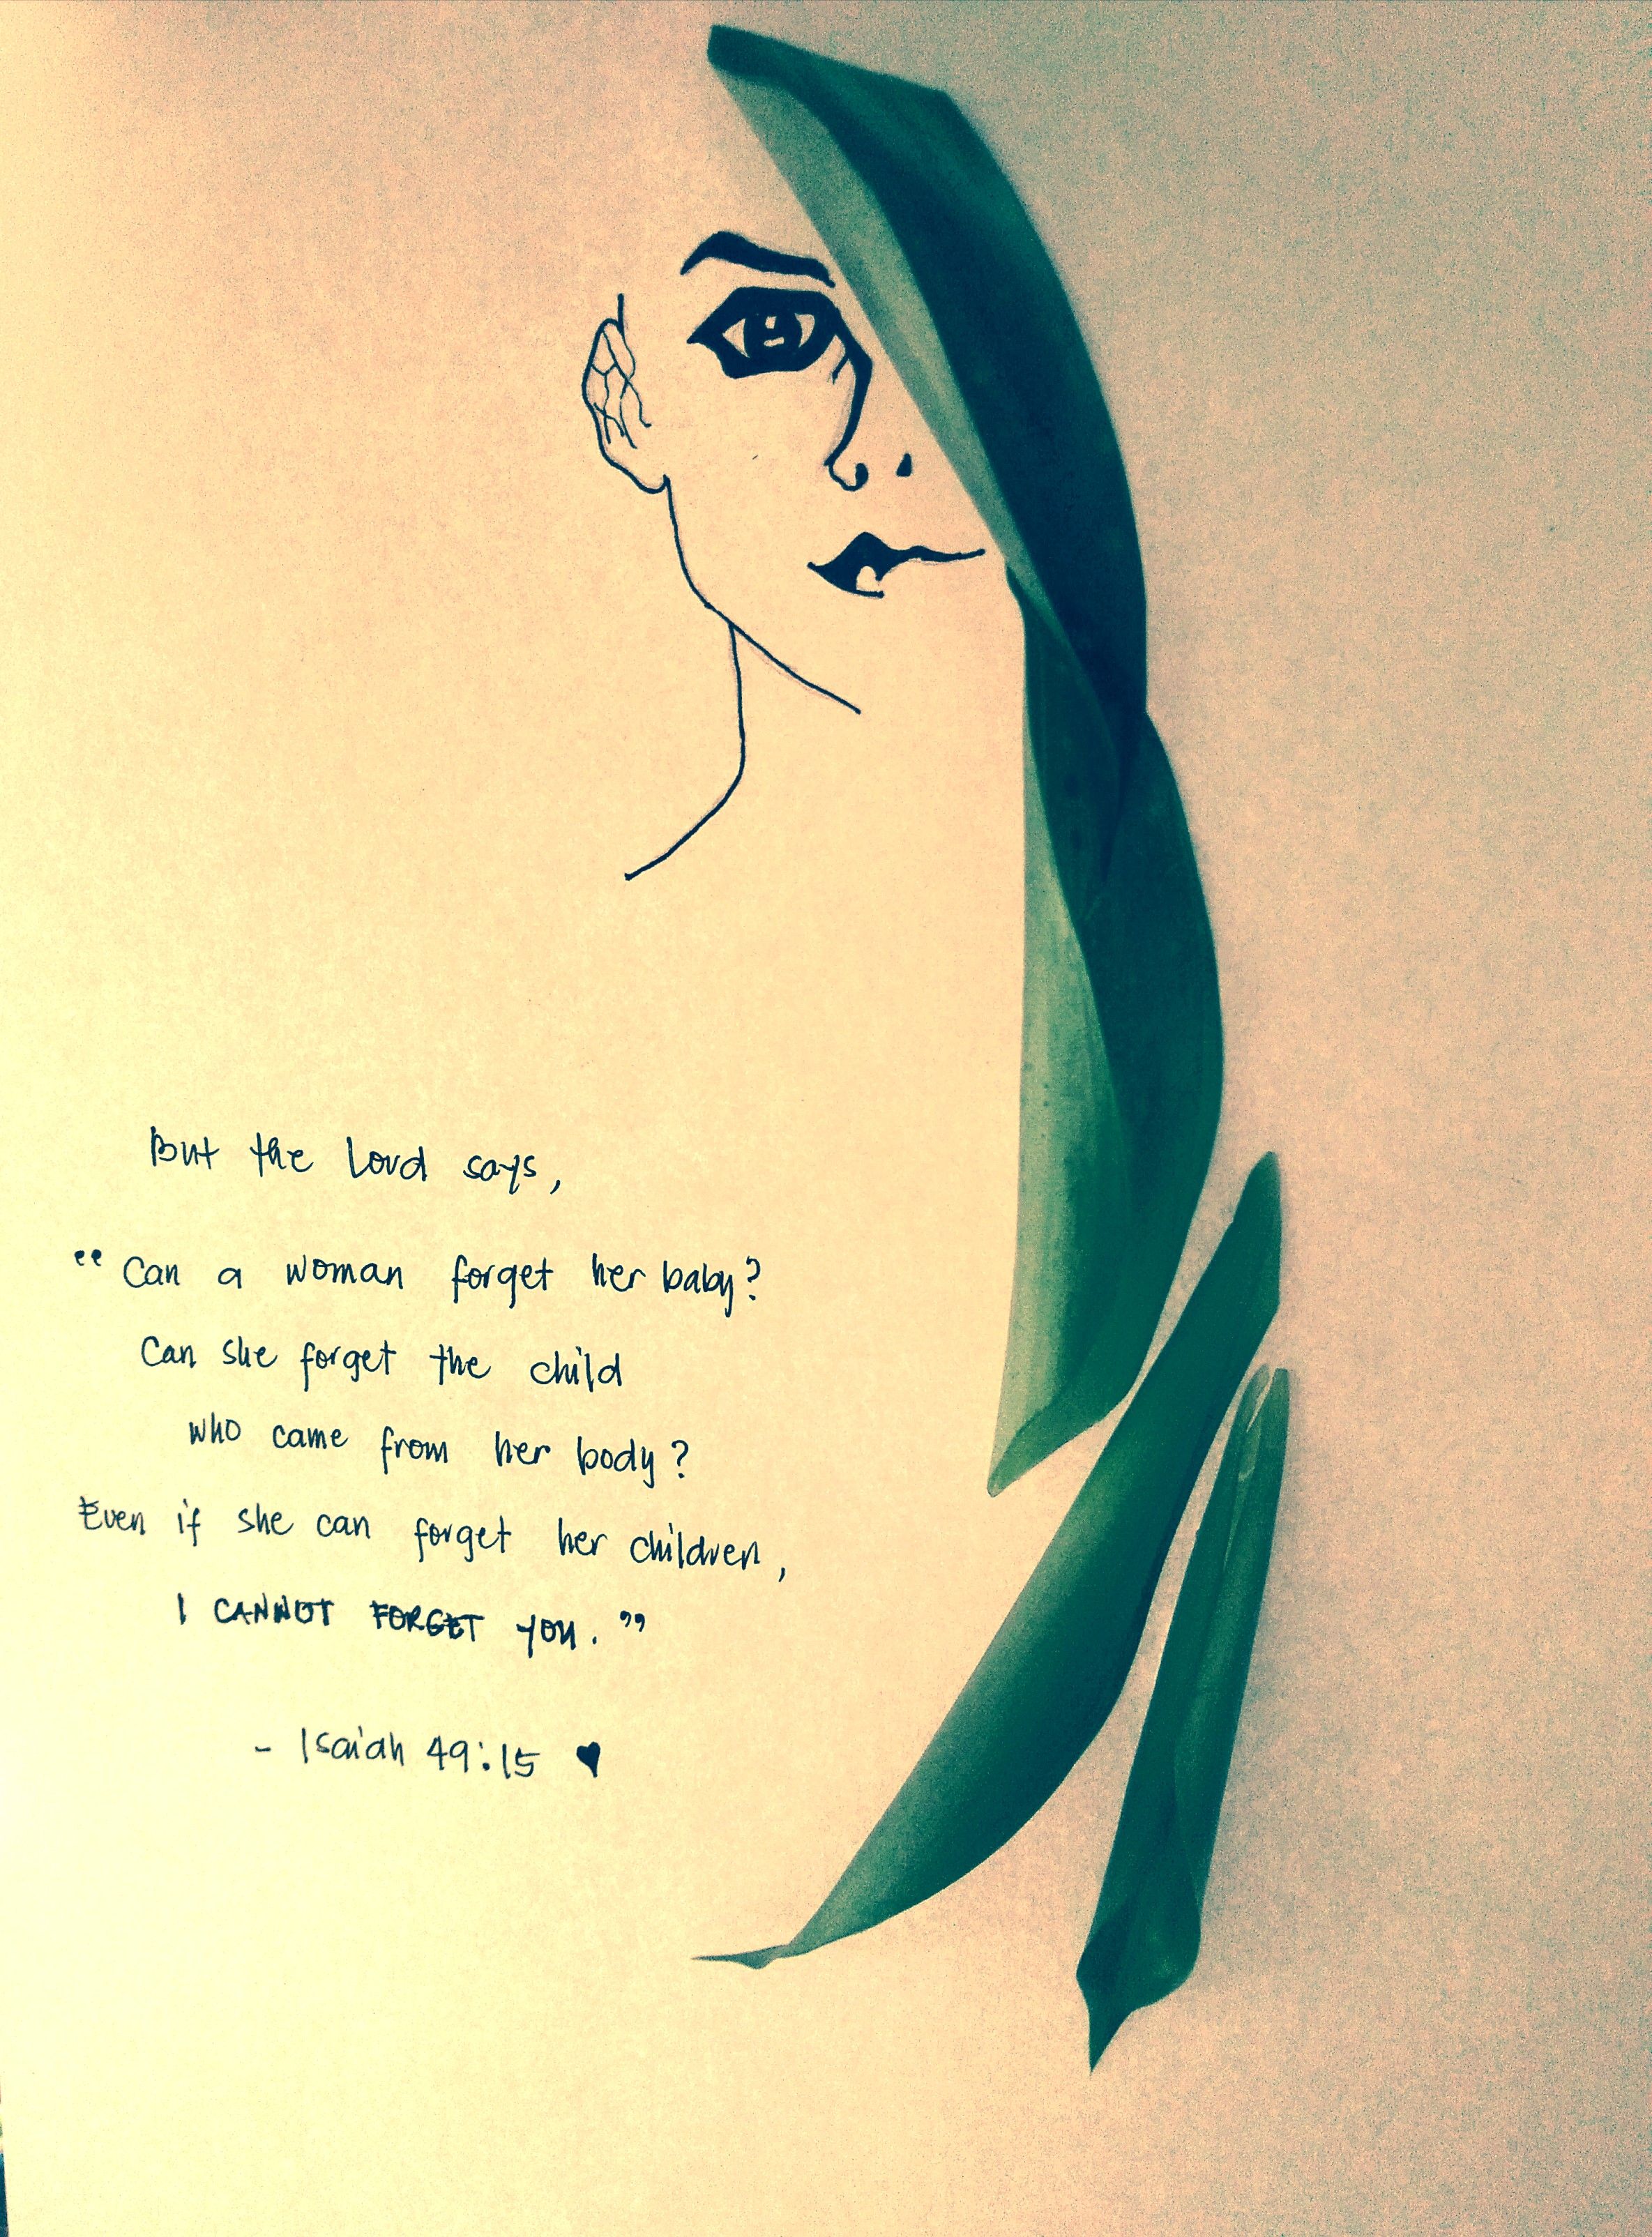 But the Lord says,
"Can a woman forget her baby?
Can she forget the child
who came from her body?
Even if she can forget her children,
I CANNOT FORGET YOU."
- Isaiah 49:15 ♥